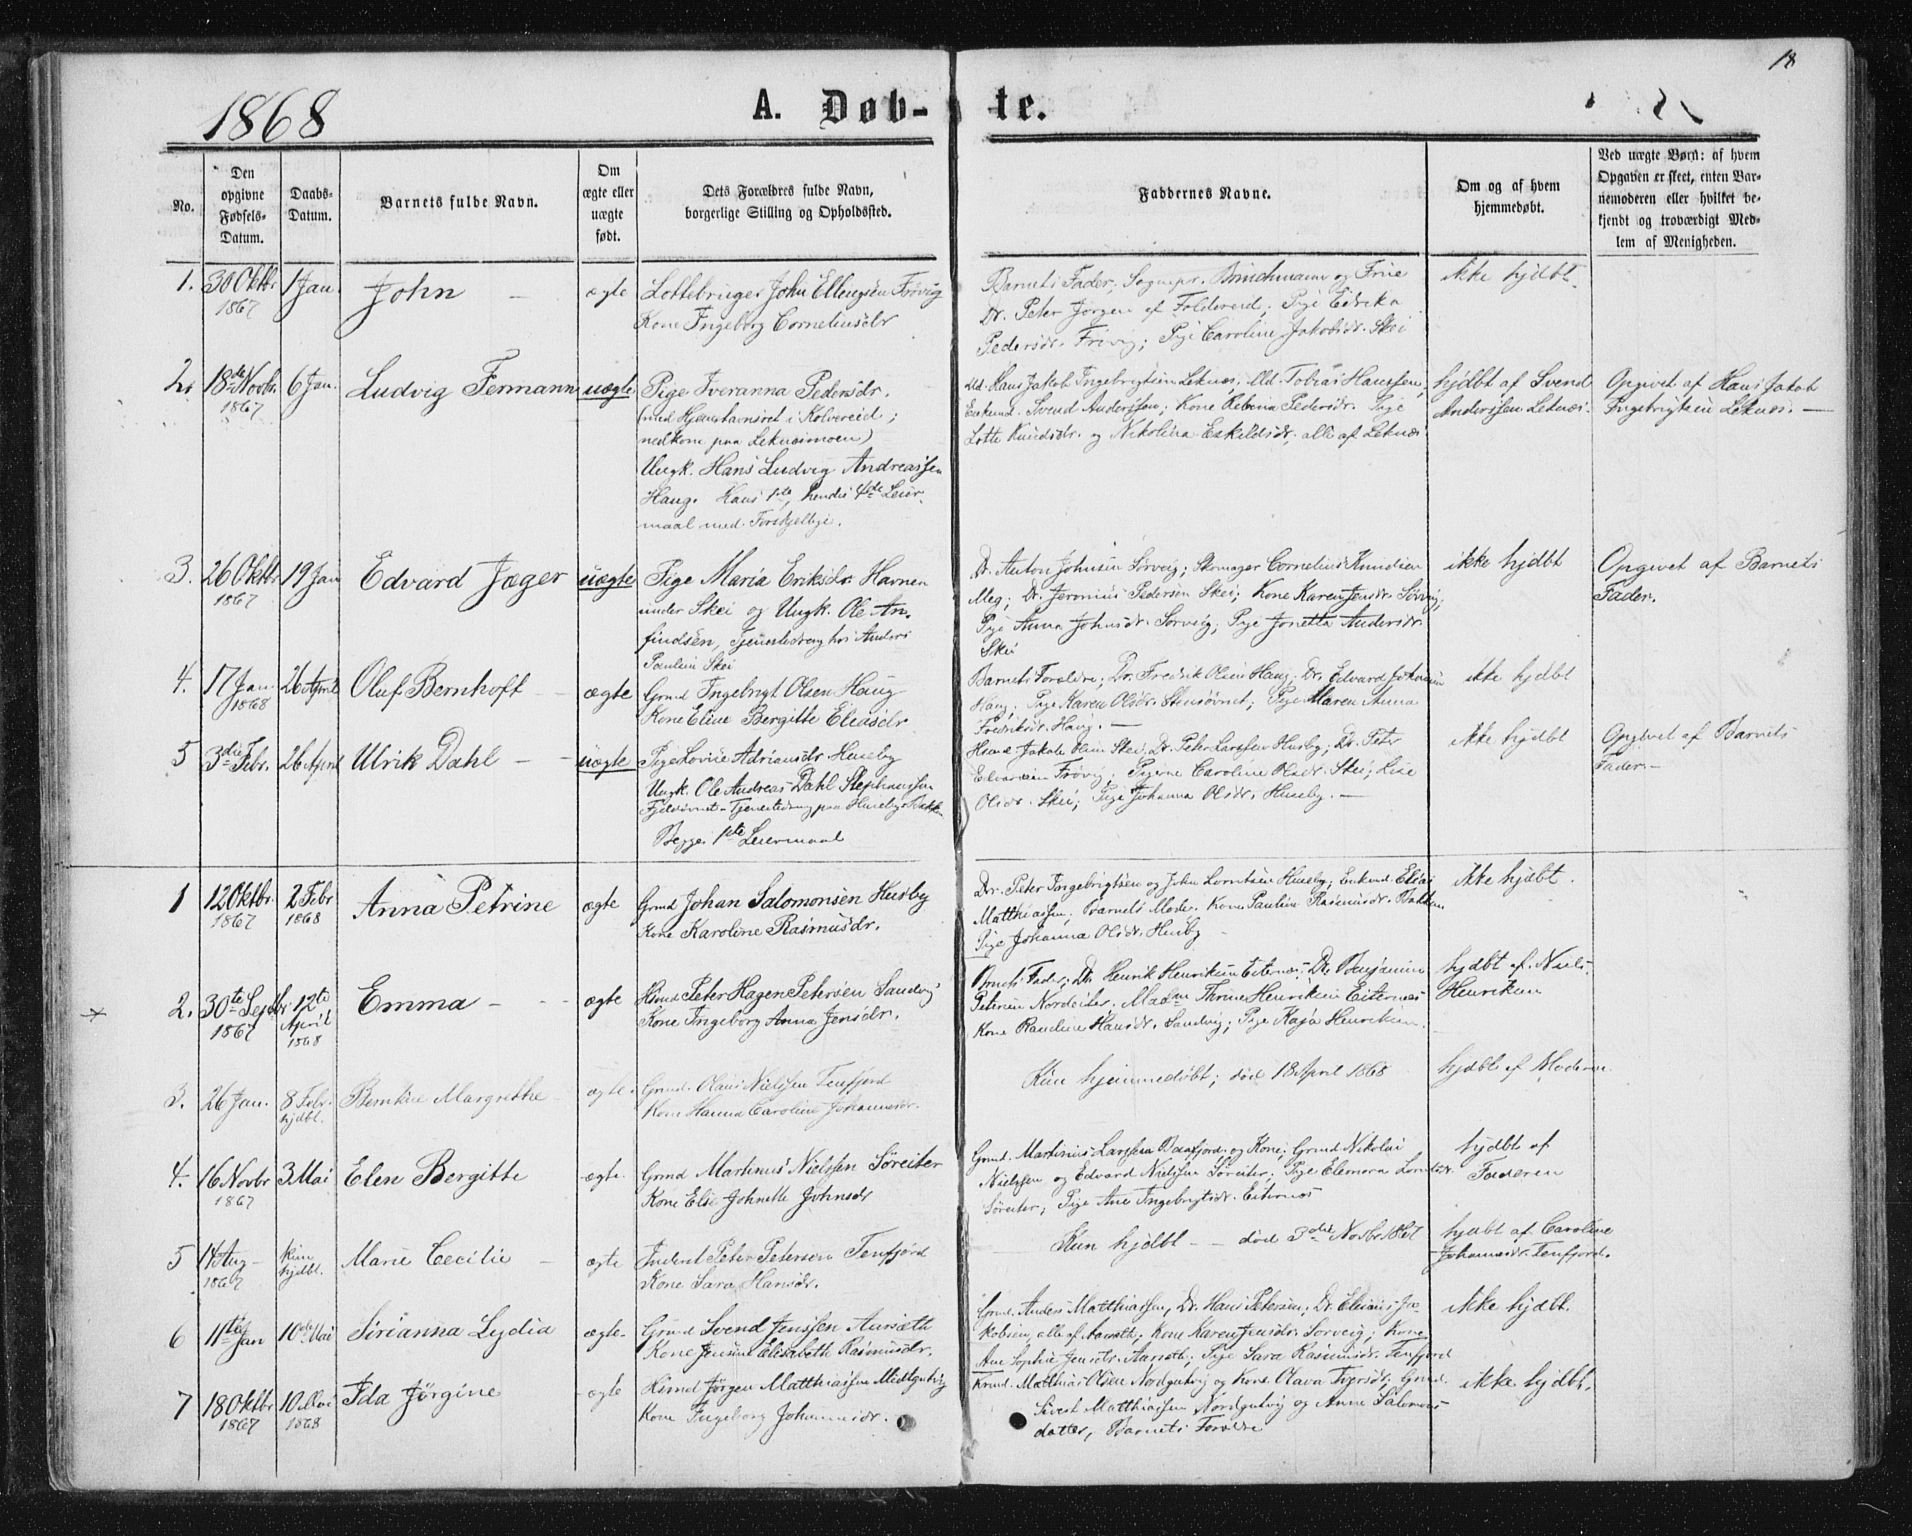 18
1868
A. Døb-te.
No.
Den opgivne Fødsels-Datum.
Daabs-Datum.
Barnets fulde Navn.
Om ægte eller uægte født.
Dets Forældres fulde Navn, borgerlige Stilling og Opholdssted.
Faddernes Navne.
Om og af hvem hjemmedøbt.
Ved uægte Børn: af hvem Opgaven er skeet, enten Barnemoderen eller hvilket bekjendt og troværdigt Medlem af Menigheden.
1. 30 Oktbr 1867
1 Jan.
John
ægte
John Ellingsen Frøvig
Kone Ingeborg Corneliusdr
Barnets Fader, Sognepr. Brinchmann og Frue
Dr. Peter Jörgen af Foldereid, Pige
Pedersdr. Frövig; Pige Caroline Jakobsdr. Skei
ikke hjdbt.
2. 18de Novbr. 1867
6 Jan.
Ludvig Fermann
uægte
Pige Iveranna Pedersdr.
(med Hjemstavnsret i Kolvereid;
nedkom paa Leknesmoen)
Ungk. Hans Ludvig Andreassen
Haug. Hans 1ste, hendes 4de Leier-
maal med
Hans Jakob Ingebrigtsen Leknes, Tobias Hanssen,
Enkmd. Svend Anderssen; Kone Pedersdr. Pige
Lotte Knudsdr. og Nikolina Eskildsdr. alle af Leknes
hjdbt af Svend
Anderssen Leknes.
Opgivet af Hans Jakob
Ingebrigtsen Leknes. —
3. 26 Oktbr 1867
19 Jan
Edvard Jæger
uægte
Pige Maria Eriksdr. Havnen
under Skei og Ungk. Ole An-
findsen, Tjenestedreng hos Anders
Paulsen Skei
Dr. Anton Johnsen Sörvig; Skomager Cornelius Knudsen
Meg; Dr. Jeronius Pedersen Skei; Kone Karen Jensdr. Sörvig;
Pige Anna Johnsdr. Sörvig; Pige Jonetta Andersdr.
Skei
ikke hjdbt
Opgivet af Barnets
Fader.
4. 17 Jan 1868
26 April
Oluf Bernhoft
ægte
Grmd Ingebrigt Olsen Haug
Kone Eline Bergitte Eliasdr
Barnets Forældre; Dr. Fredrik Olsen Haug; Dr. Edvard Johnsen
Haug; Pige Karen Olsdr. Pige Maren Anna
Fredriksdr. Haug. —
ikke hjdbt
5 3die Febr.
26 April
Ulrik Dahl
uægte
Pige Lovise Adriansdr Huseby
Ungk. Ole Andreas Dahl Stephanssen
Tjenestedreng paa Huseby
Begges 1ste Leiermaal
Jakob Olsen Skei, Dr. Peter Larssen Husby; Dr. Peter
Edvardsen Frövig; Pigerne Caroline Olsdr. Skei; Lise
Olsdr. Skei; Pige Johanna Olsdr. Huseby. —
ikke hjdbt
Opgivet af Barnets
Fader. —
1 12 Oktbr. 1867
2 Febr 1868
Anna Petrine
ægte
Grmd Johan Salomonsen Husby
Kone Karoline Rasmusdr.
Dr. Peter Ingebrigtsen og John Lorntsen Huseby; Enkmd. Elias
Matthiassen; Barnets Moder. Kone Pauline Rasmusdr. Bakken
Pige Johanna Olsdr. Husby
ikke hjdbt.
2. 30te Septbr 1867
12te April 1868
Emma
ægte
Husmd Peter Hagen Petersen Sandvig
Kone Ingeborg Anna Jensdr.
Barnets Fader, Dr. Henrik Henriksen Eiternes; Dr. Benjamin
Petersen Nordeiter. Madm Thrine Henriksen Eiternes
Kone Pauline Hansdr. Sandvig; Pige Kaja Henriksen.
hjdbt af Niels
Henriksen
3. 26 Jan.
8 Febr. hjdbt.
Margrethe
ægte.
Grmd. Olaus Nielssen Tenfjord
Kone Hanna Caroline Johannesdr.
Kun hjemmedöbt; död 18 April 1868
hjdbt af Moderen
4. 16 Novbr 1867
3 Mai
Elen Bergitte
ægte.
Grmd Martinus Nielssen Söreiter
Kone Elis Johnette Johnsdr
Grmd. Martinus Larssen og Kone; Grmd Nikolai
Nielssen og Edvard Nielssen Söreiter; Pige Elenora Lorntsdr.
Söreiter; Pige Ane Ingebrigtsdr. Eiternes
hjdbt af
Faderen
5 14 Aug 1867
kun hjdbt.
Marie Cecilie
ægte
Inderst Peter Petersen Tenfjord
Kone Sara Hansdr.
Kun hjdbt — död 3die Novbr 1867
hjdbt af Caroline
Johannesdr. Tenfjord.
6 11te Jan
10de Mai
Sirianna Lydia
ægte
Grmd Svend Jenssen Aursæth
Kone Jensine Elisabeth Rasmusdr.
Grmd. Anders Matthiassen, Dr. Hans Petersen; Dr. Elias Ja-
kobsen, alle af Aursæth; Kone Karen Jensdr. Sörvig; Kone
Ane Sophie Jensdr. Aursæth; Pige Sara Rasmusdr. Tenfjord
ikke hjdbt.
7 18 Oktbr 1867
10 Mai 1868
Ida Jörgine
ægte
Husmd Jörgen Matthiassen Medgutvig
Kone Ingeborg Johannesdr.
Grmd. Matthias Olsen Nordgutvig og Kone Olava Iversdr; Grmd.
Sivert Matthiassen Nordgutvig og Anne Salomons
datter, Barnets Forældre
ikke hjdbt.